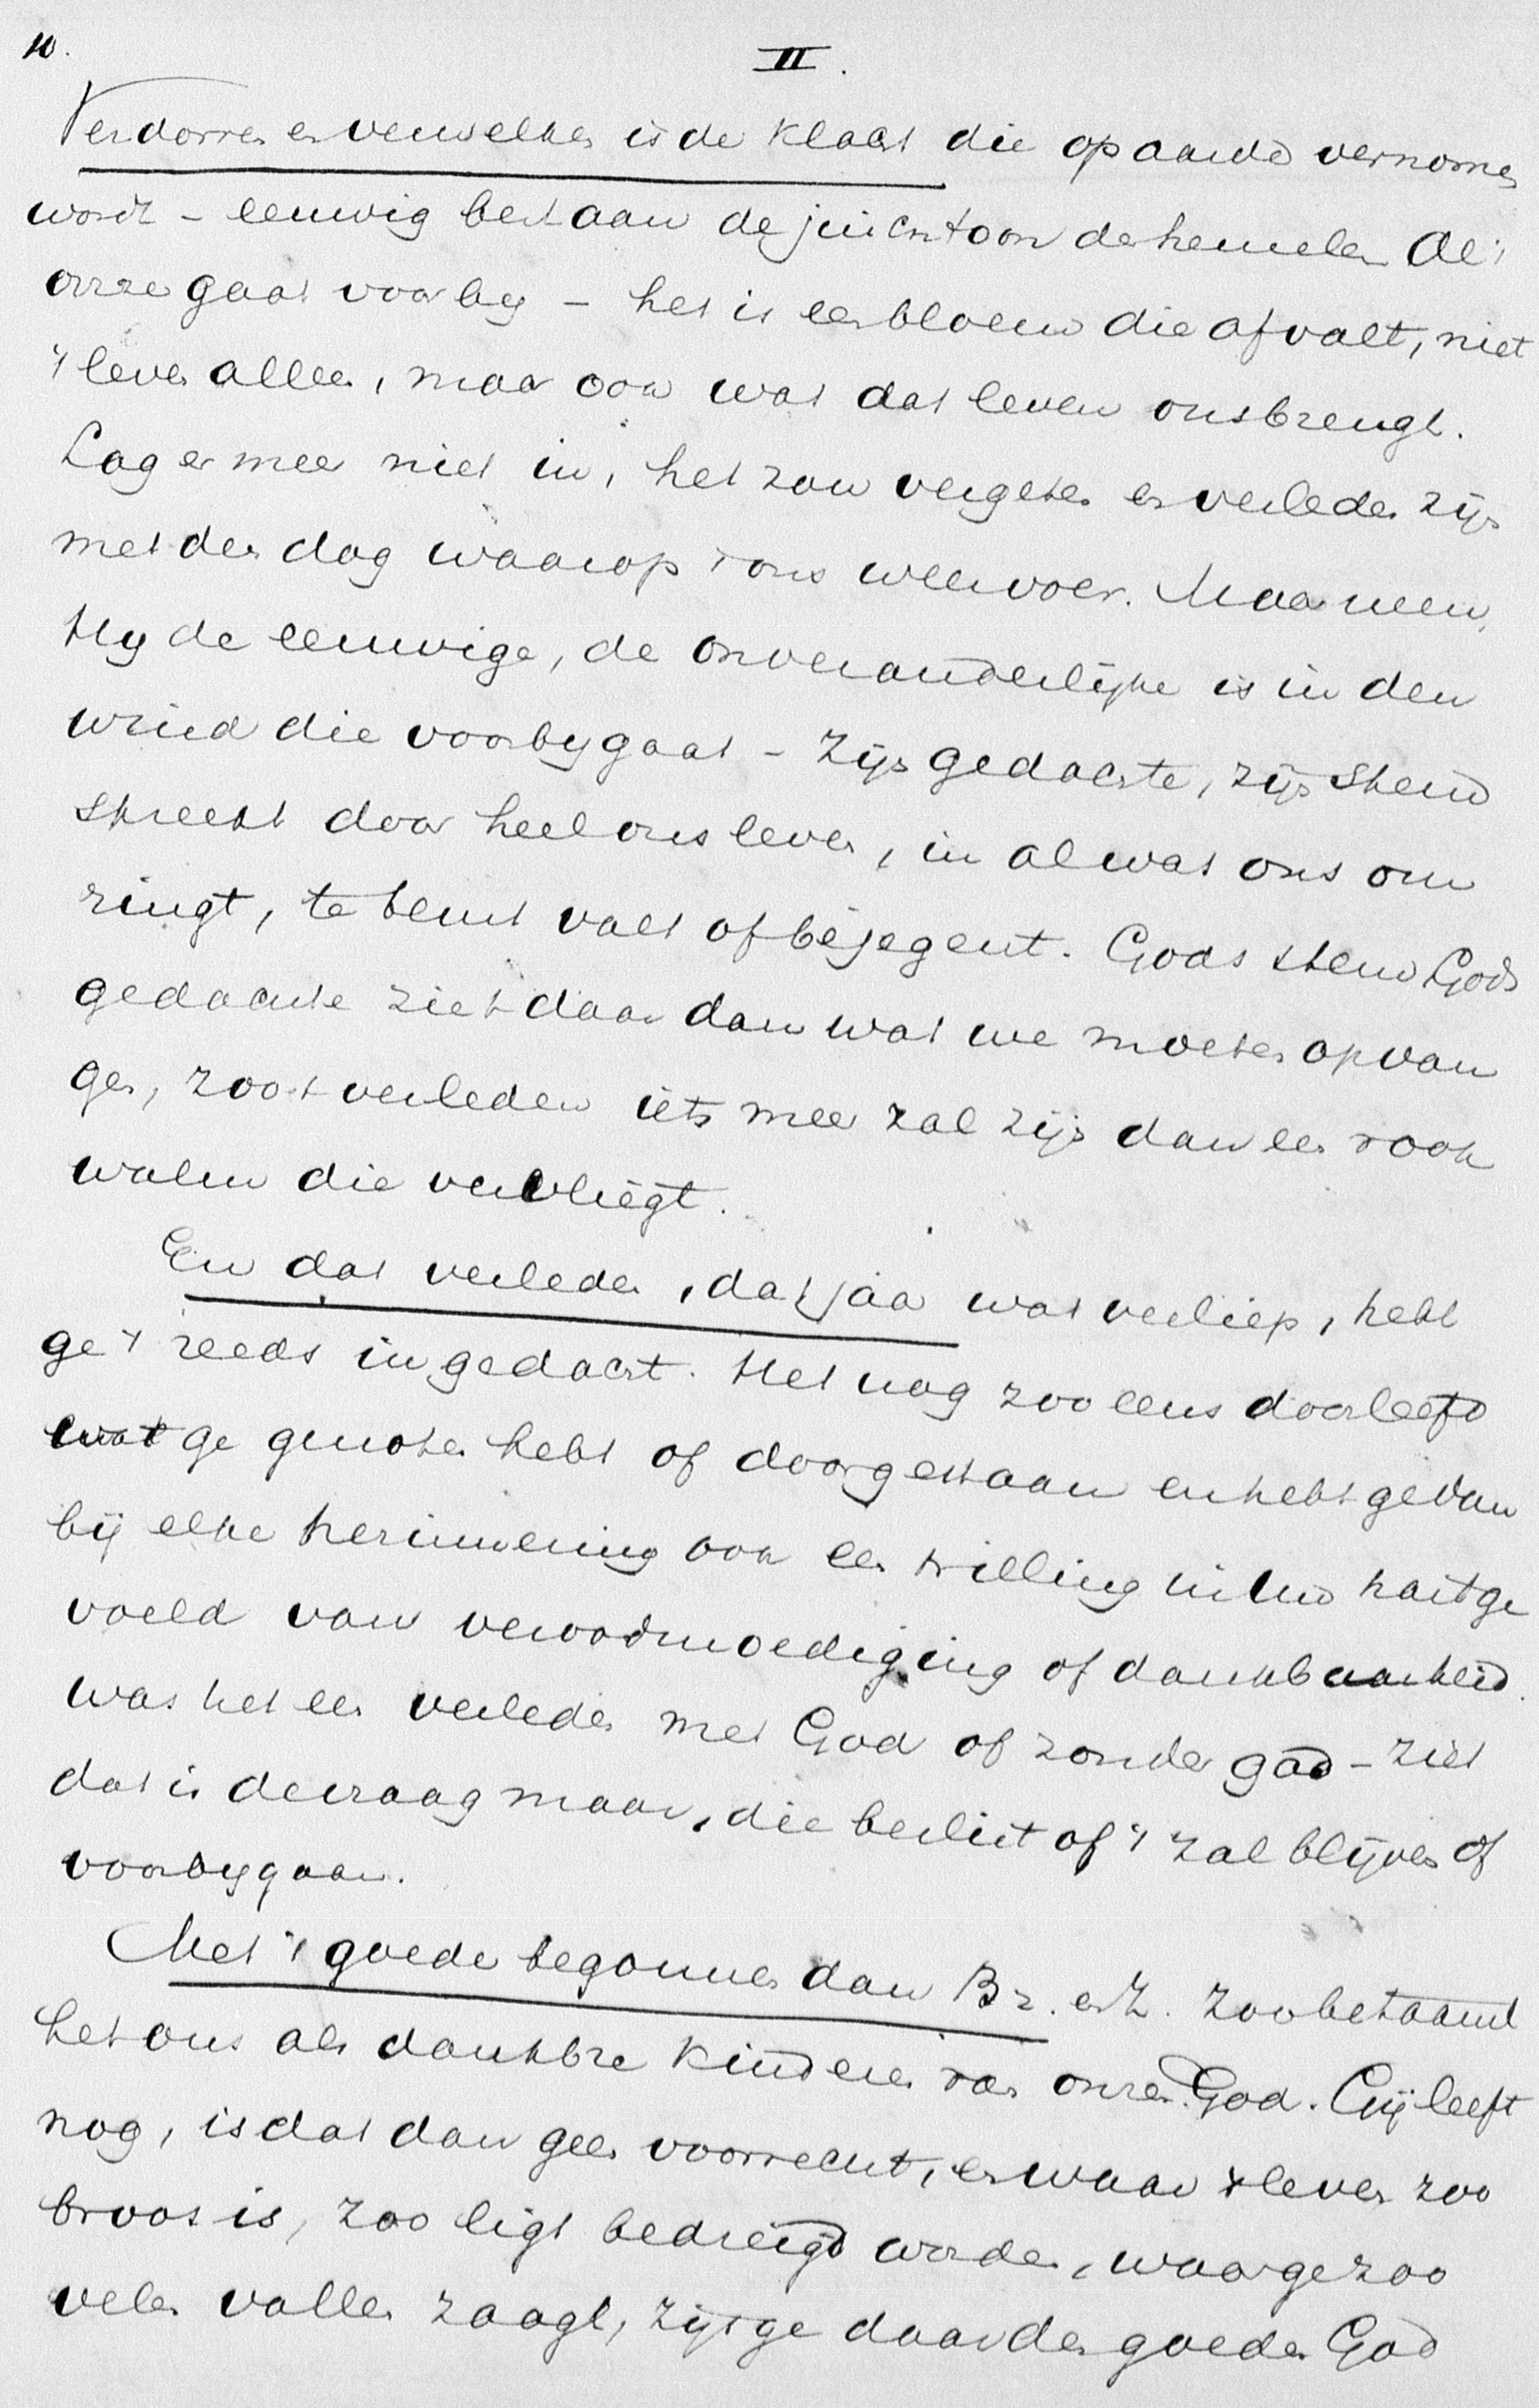 10.
II.
Verdorren en verwelken is de klacht die op aarde vernomen
wordt – eeuwig bestaan de juichtoon der hemelen Al 't
onze gaat voorby – het is een bloem die afvalt, niet
't leven alleen, maar ook wat dat leven ons brengt.
Lag er meer niet in, het zou vergeten en verleden zijn
met den dag waarop 't ons weervoer. Maar neen,
Hy de eeuwige, de onveranderlijke is in den
wind die voorbygaat – Zijn gedachte, zijn stem
spreekt door heel ons leven, in al wat ons om
ringt, te beurt valt of bejegent. Gods stem Gods
gedachte ziet daar dan wat we moeten opvan
gen, zoo 't verleden iets meer zal zijn dan een rook
wolk die vervliegt.
En dat verleden, dat jaar wat verliep, hebt
ge 't reeds ingedacht. Het nog zoo eens doorleefd
wat ge genoten hebt of doorgestaan en hebt ge dan
bij elke herinnering ook een trilling in uw hart ge
voeld van verootmoediging of dankbaarheid.
was het een verleden met God of zonder God – ziet
dat is de vraag maar, die beslist of 't zal blijven of
voorbygaan.
Met 't goede begonnen dan Br. en Z. zoo betaamt
het ons als dankbre kinderen van onzen God. Gij leeft
nog, is dat dan geen voorrecht, en waar 't leven zoo
broos is, zoo ligt bedreigd worden, waar ge zoo
velen vallen zaagt, zijt ge daar den goeden God